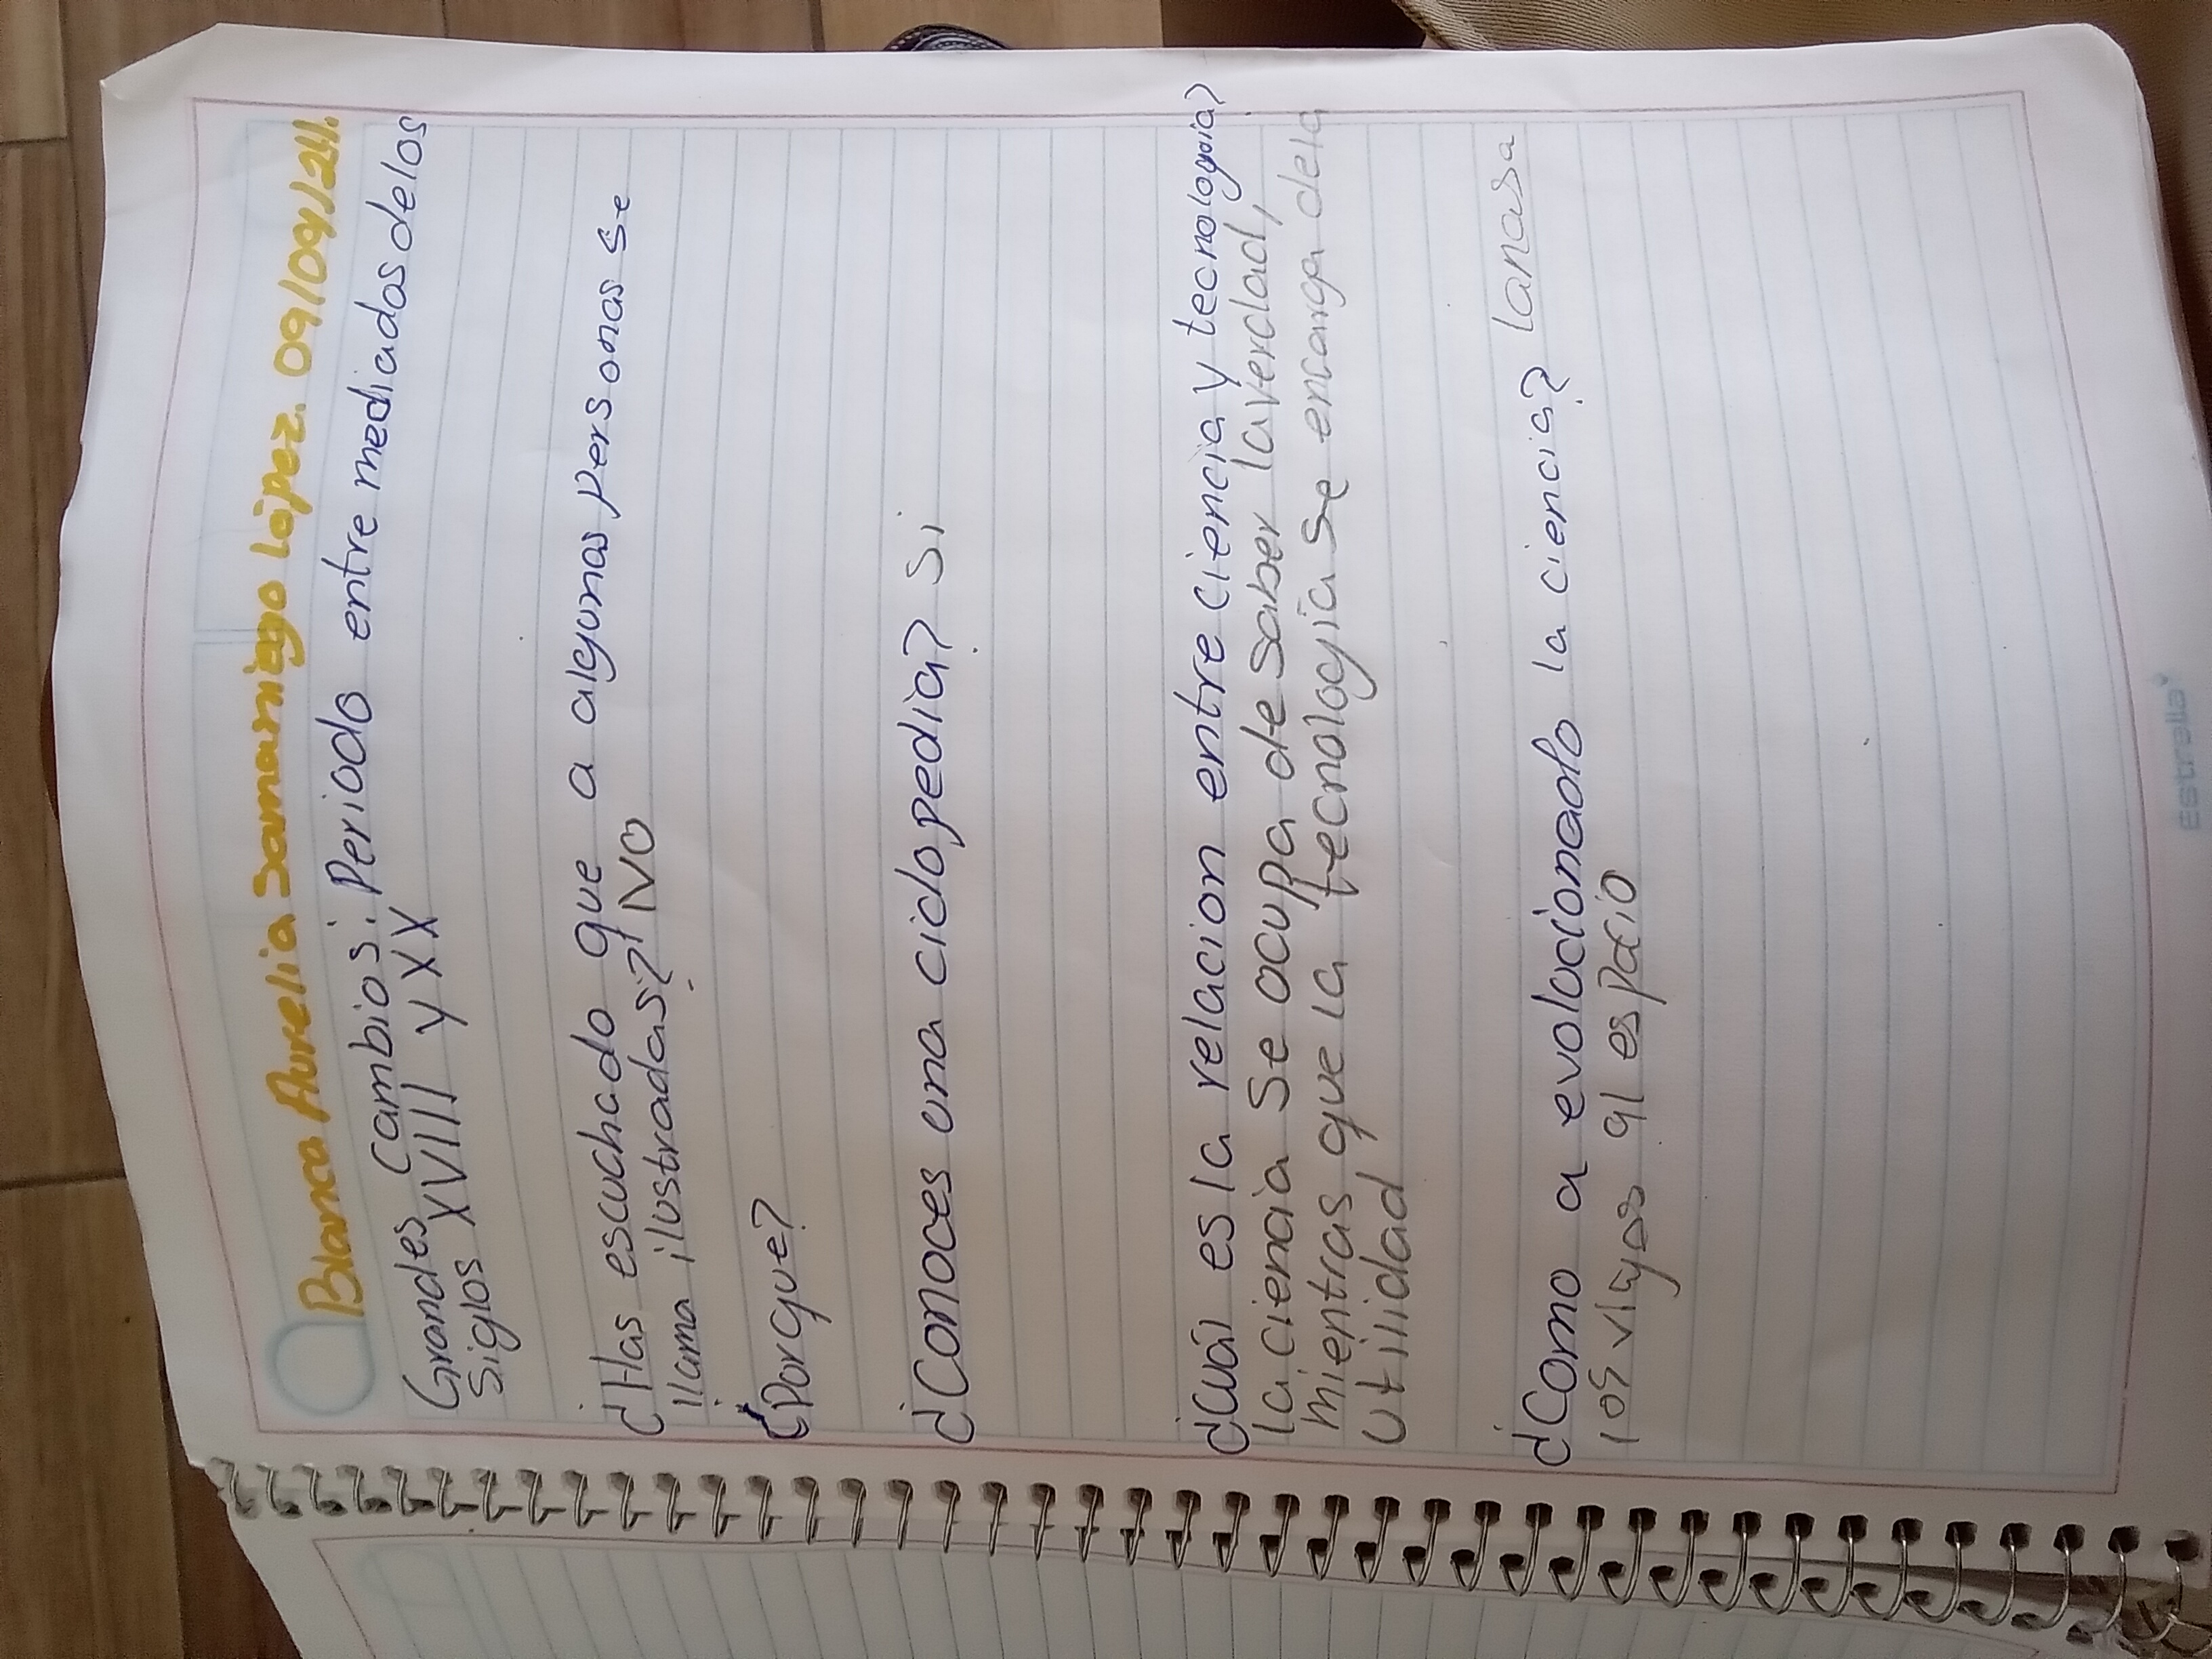 Blanca Aurelia Samaniego López. 09/09/24.
Grandes cambios: Periodo entre mediados delos
Siglos XVIII y XX
¿Has escuchado que a algunas personas se
llama ilustradas? NO
¿Porque?
¿Conoces una ciclopedia? Si
¿Cuál es la relacion entre ciencia y tecnologia?
la ciencia se ocupa de saber la verdad,
mientras que la tecnologia se encarga dela
utilidad
¿Como a evolucionado la ciencia? lanasa
los viajes al espacio
Estrella